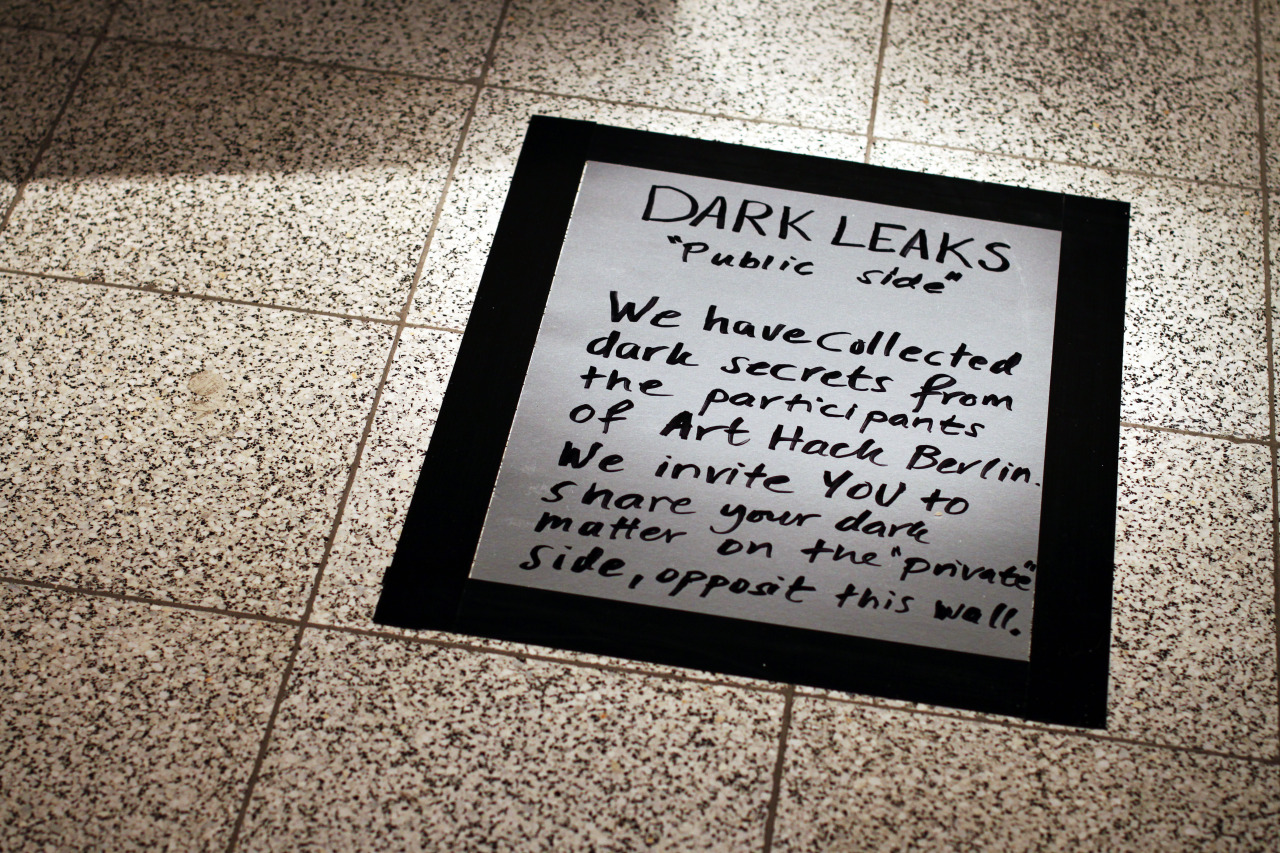 DARK LEAKS
"Public side"
We have collected
dark secrets from
the participants
of Art Hack Berlin.
We invite YOU to
share your dark
matter on the "private"
side, opposit this wall.